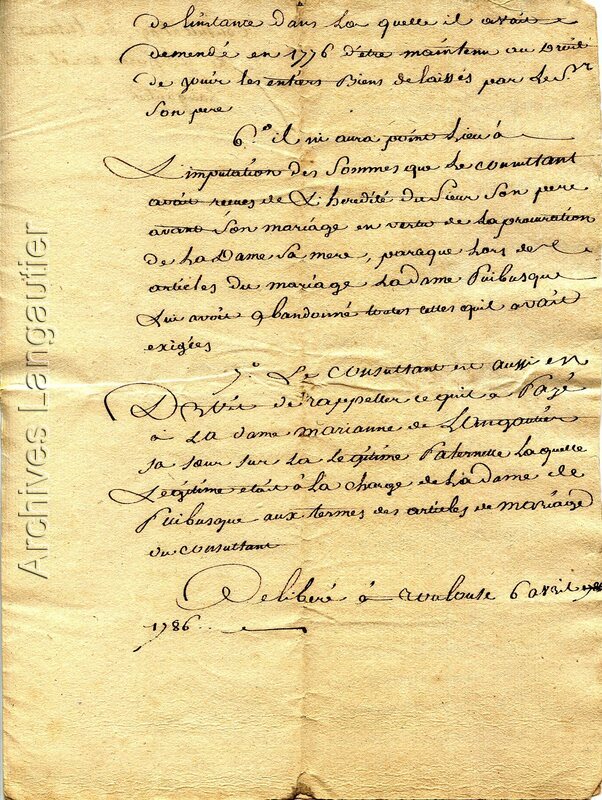 de l'instance dans la quelle il avait
demendé en 1776 d'etre maintenu au Droit
de jouir les entiers Biens delaissés par le Sr
son pere
6.° il ni aura point Lieu à
L'imputation des sommes que le consultant
avait recues de L'heredité du sieur son pere
avant son mariage en vertu de la procuration
de la Dame sa mere, parceque lors des
articles du mariage la dame Puibusque
lui avoit abandonné toutes celles quil avait
exigées
7.° Le consultant est aussi en
Droit de rappeller ce quil a Payé
à la dame marianne de Langautier
sa sœur sur la legitime Paternelle laquelle
Legitime était à la charge de la Dame de
Puibusque aux termes des articles de mariage
du consultant
Deliberé à toulouse 6 avril 1786
1786.
Archives Langautier